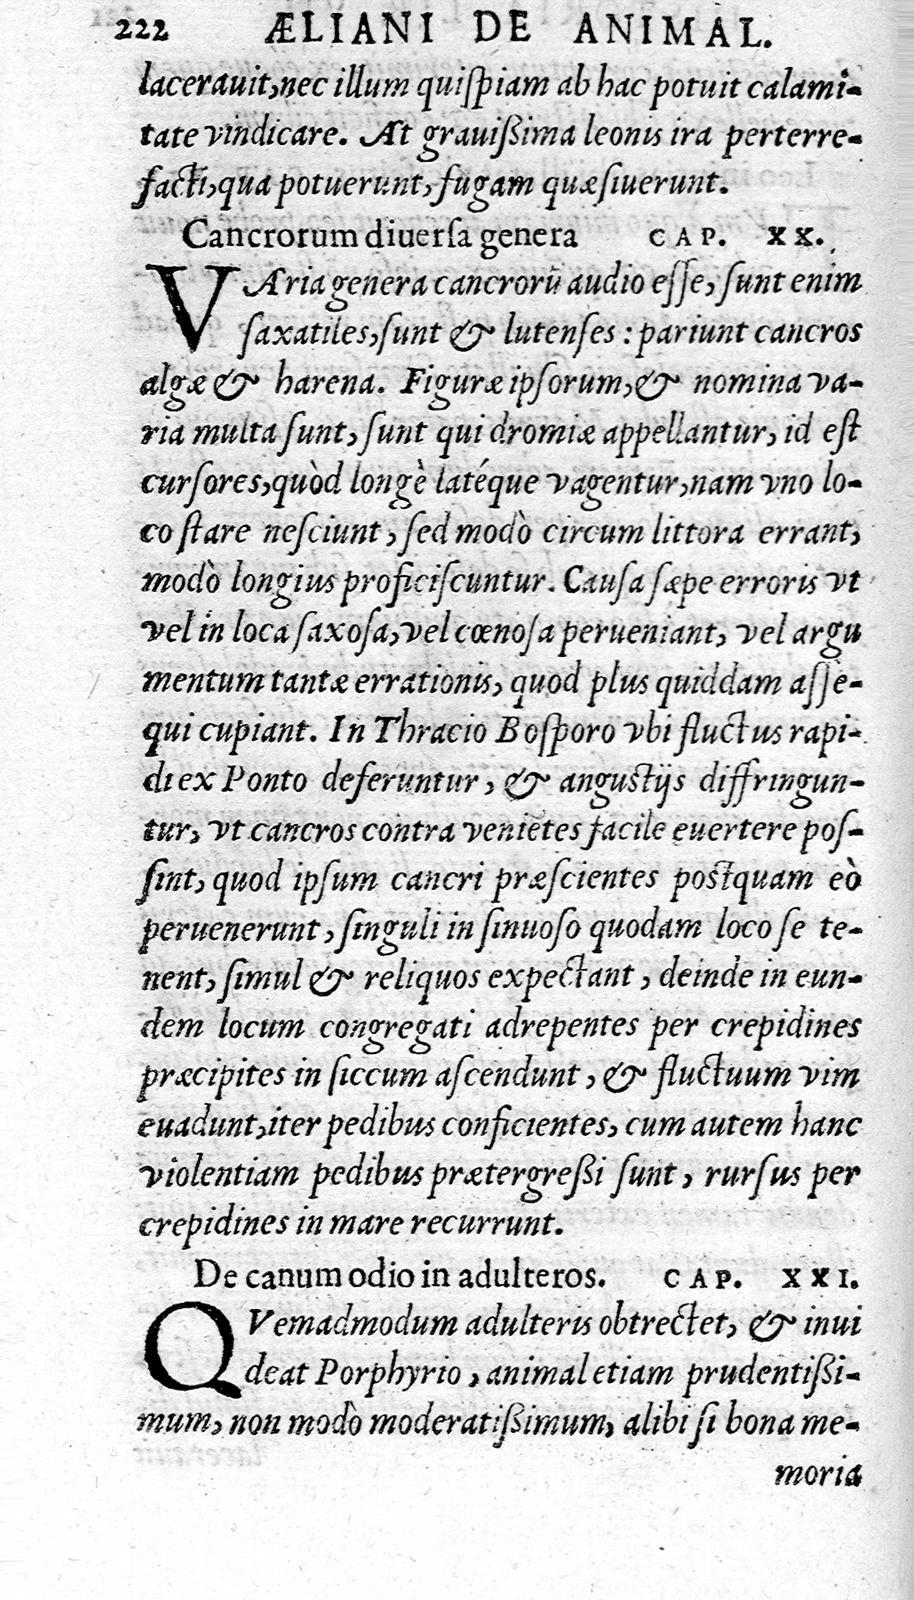 222 ÆLIANI DE ANIMAL.
lacerauit, nec illum quiſpiam ab hac potuit calami-
tate vindicare. At grauißima leonis ira perterre-
facti, qua potuerunt, fugam quæſiuerunt.
Cancrorum diuerſa genera CAP. XX.
VAria genera cancrorū audio eſſe, ſunt enim
ſaxatiles, ſunt & lutenſes: pariunt cancros
algæ & harena. Figuræ ipſorum, & nomina va-
ria multa ſunt, ſunt qui dromiæ appellantur, id eſt
curſores, quòd longè latéque vagentur, nam vno lo-
co ſtare neſciunt, ſed modò circum littora errant,
modò longius proficiſcuntur. Cauſa ſæpe erroris vt
vel in loca ſaxoſa, vel cœnoſa perueniant, vel argu
mentum tantæ errationis, quod plus quiddam aſſe-
qui cupiant. In Thracio Boſporo vbi fluctus rapi-
di ex Ponto deferuntur, & anguſtijs diffringun-
tur, vt cancros contra veniētes facile euertere poſ-
ſint, quod ipſum cancri præſcientes poſtquam eò
peruenerunt, ſinguli in ſinuoſo quodam loco ſe te-
nent, ſimul & reliquos expectant, deinde in eun-
dem locum congregati adrepentes per crepidines
præcipites in ſiccum aſcendunt, & fluctuum vim
euadunt, iter pedibus conficientes, cum autem hanc
violentiam pedibus prætergreßi ſunt, rurſus per
crepidines in mare recurrunt.
De canum odio in adulteros. CAP. XXI.
QVemadmodum adulteris obtrectet, & inui
deat Porphyrio, animal etiam prudentißi-
mum, non modò moderatißimum, alibi ſi bona me-
moria